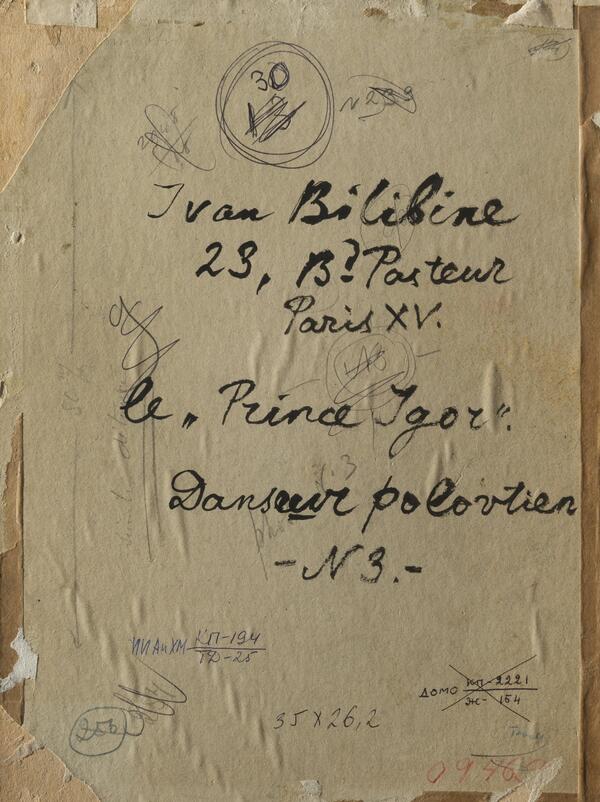 30
Ivan Bilibine
23, Bd Pasteur
Paris XV.
le „Prince Igor".
Danseur polovtien
- N 3. -
ИИАиХМ КП-194
ТД-25
ДОМО КП-2221
Ж-154
35 X 26,2